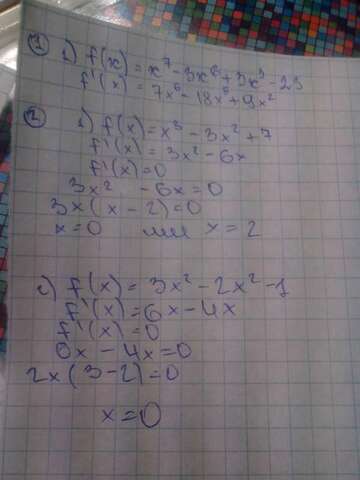 1 1) f(x) = x⁷ - 3x⁶ + 3x³ - 23
f'(x) = 7x⁶ - 18x⁵ + 9x²
2 1) f(x) = x³ - 3x² + 7
f'(x) = 3x² - 6x
f'(x) = 0
3x² - 6x = 0
3x(x - 2) = 0
x = 0 или x = 2
c) f(x) = 3x² - 2x² - 1
f'(x) = 6x - 4x
f'(x) = 0
6x - 4x = 0
2x(3 - 2) = 0
x = 0